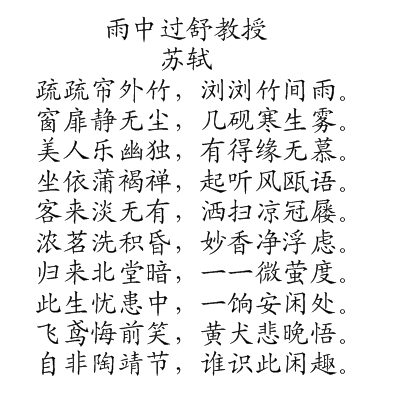 雨中过舒教授
苏轼
疏疏帘外竹，浏浏竹间雨。
窗扉静无尘，几砚寒生雾。
美人乐幽独，有得缘无慕。
坐依蒲褐禅，起听风瓯语。
客来淡无有，洒扫凉冠屦。
浓茗洗积昏，妙香净浮虑。
归来北堂暗，一一微萤度。
此生忧患中，一饷安闲处。
飞鸢悔前笑，黄犬悲晚悟。
自非陶靖节，谁识此闲趣。